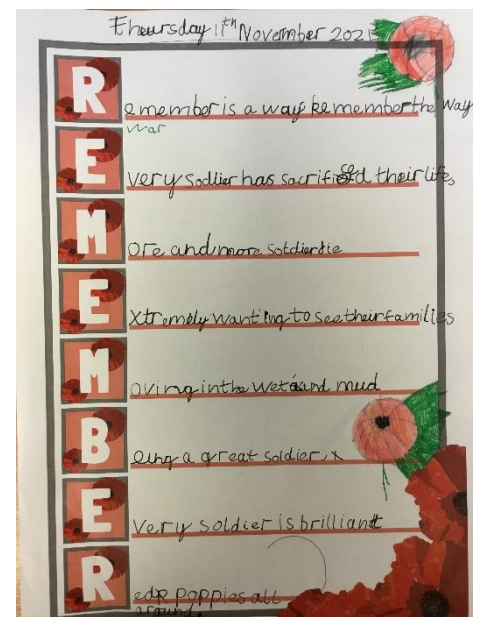 Theursday 11th November 2021
Remember is a way Remember the Way
war
Every Sodlier has sacrificed their life,
More and more Soldier die
Extremely wanting to see their families
Moving in the wet and mud
Being a great soldier,
Every soldier is brilliant
Red poppies all
around.